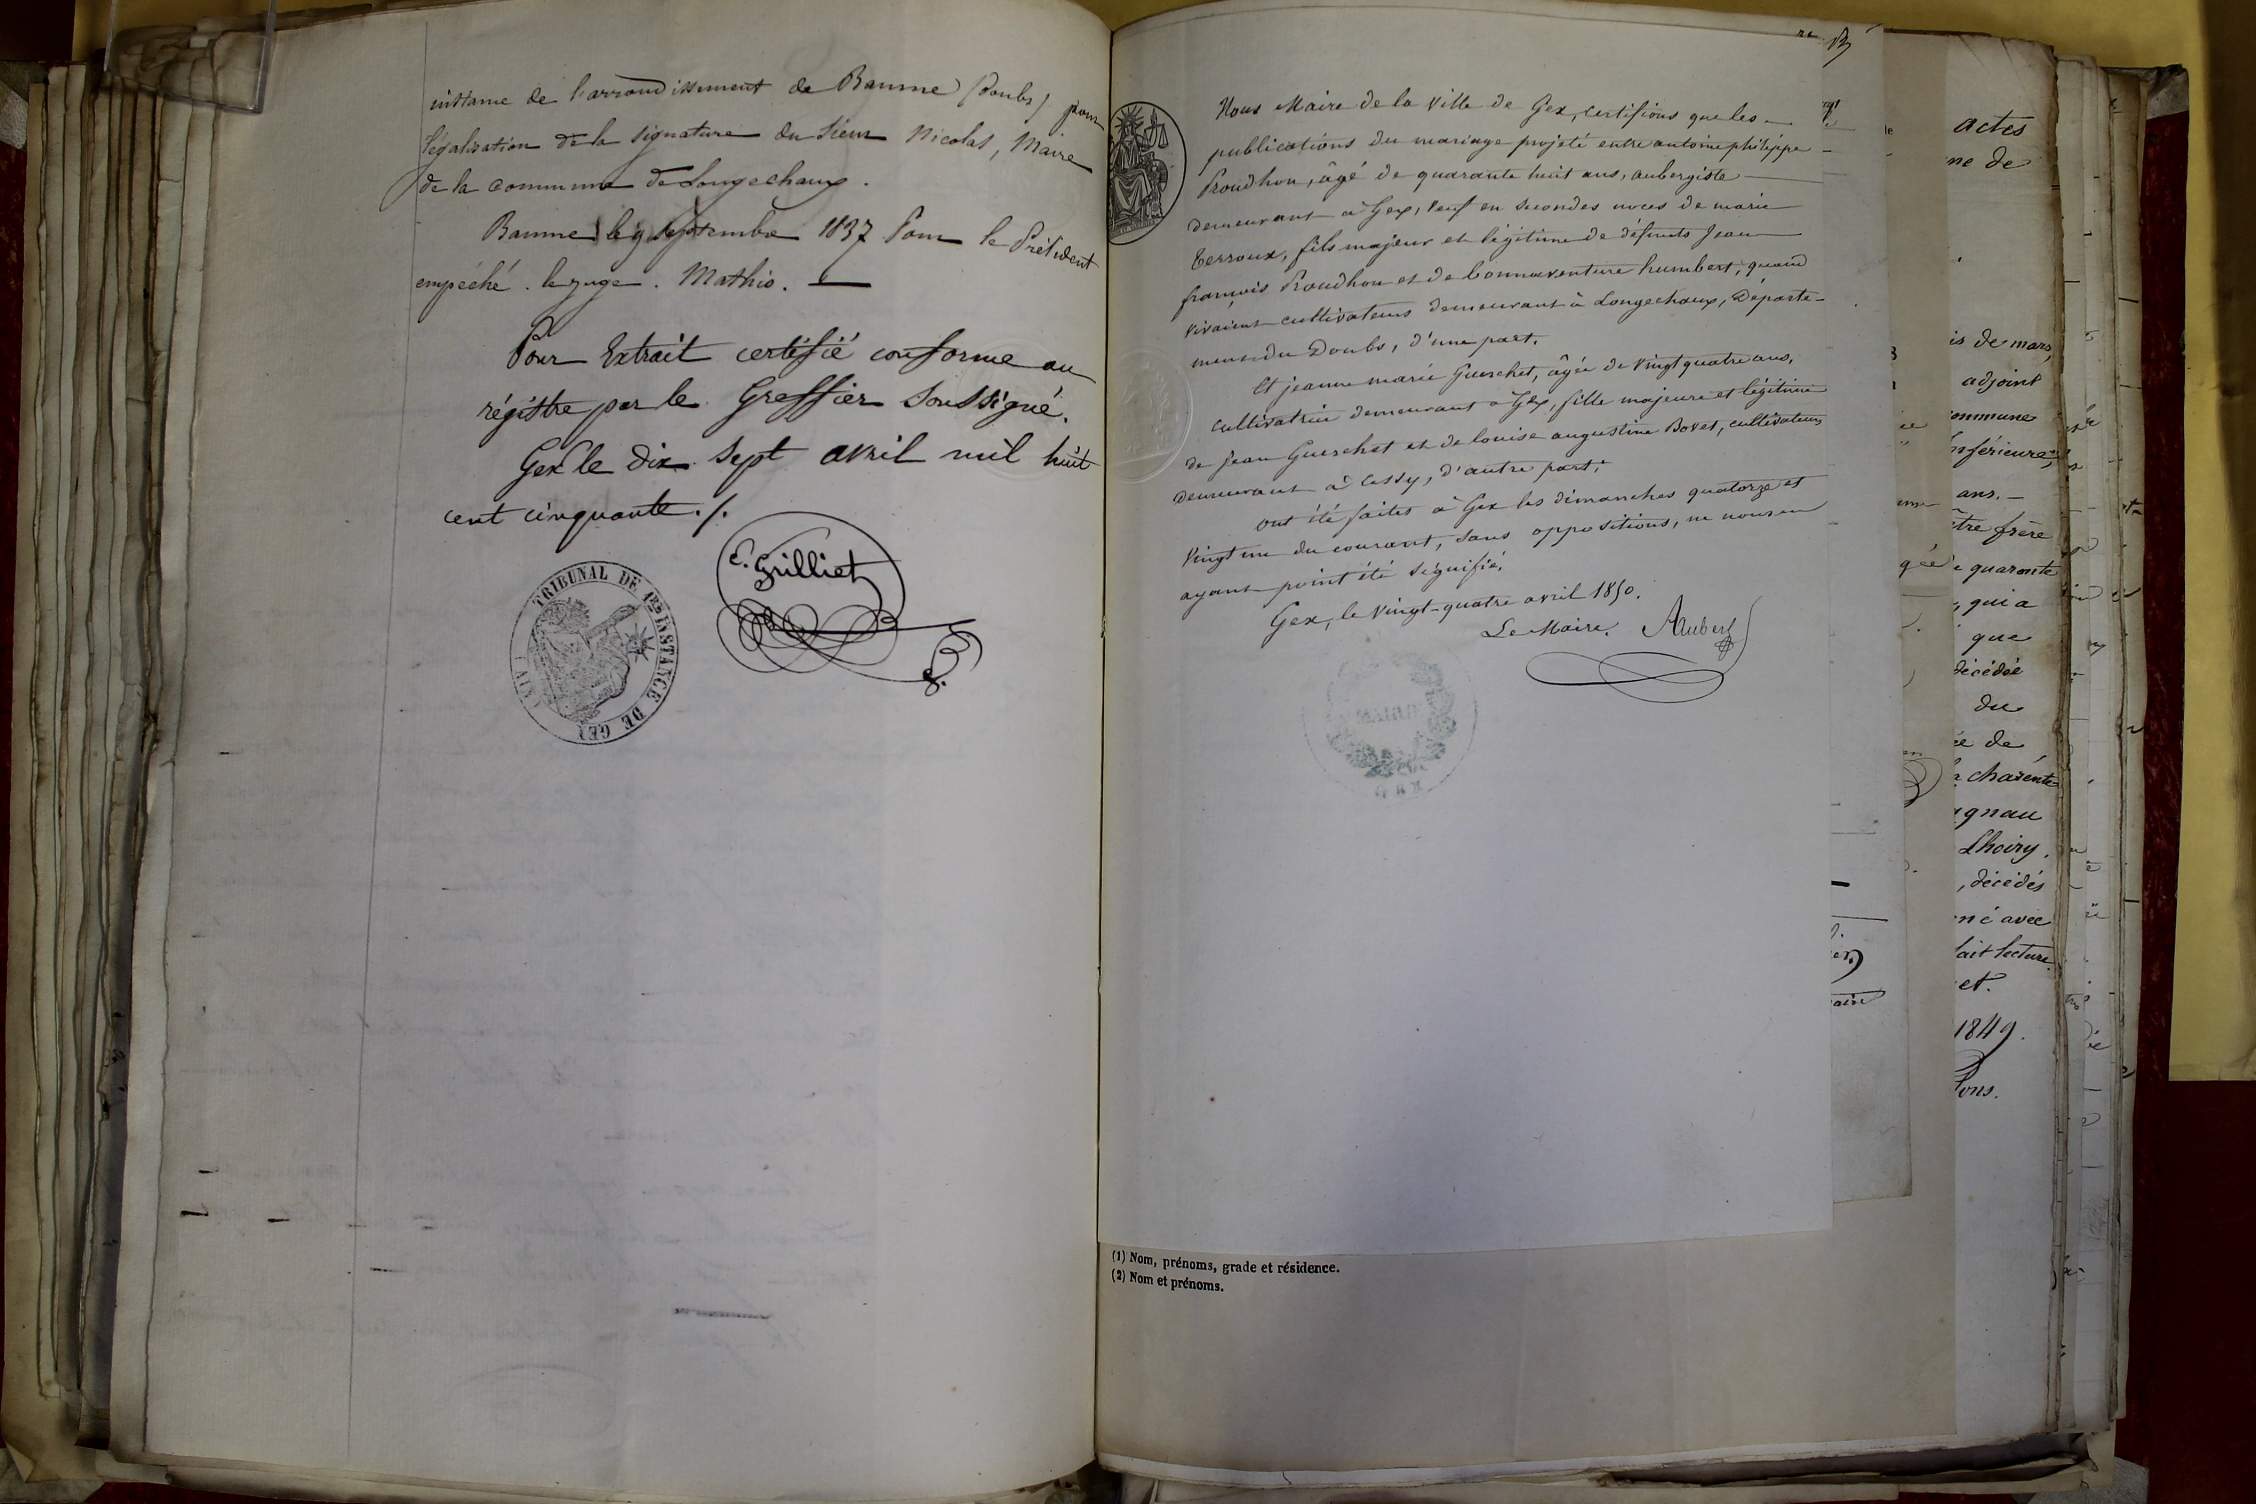 instance de l'arrondissement de Baume (Doubs) pour
légalisation de la signature du Sieur Nicolas, Maire
de la commune de Longechaux.
Baume le 9 septembre 1837 Pour le Président
empêché. le juge. Mathis.
Pour Extrait certifié conforme au
régistre par le Greffier soussigné.
Gex le dix sept avril mil huit
cent cinquante ./.
E. Grilliet
TRIBUNAL DE 1re INSTANCE DE GEX
(AIN)
Nous Maire de la ville de Gex, certifions que les
publications du mariage projeté entre antoine philippe
Proudhon, âgé de quarante huit ans, aubergiste
demeurant à Gex, veuf en secondes noces de marie
terroux, fils majeur et légitime de défunts Jean
françois Proudhon et de bonnaventure humbert, quand
vivaient cultivateurs demeurant à Longechaux, Départe-
ment du Doubs, d'une part.
Et jeanne marie Guerchet, âgée de vingt quatre ans,
cultivatrice demeurant à Gex, fille majeure et légitime
de Jean Guerchet et de louise augustine Bovet, cultivateurs
demeurant à Cessy, d'autre part.
ont été faites à Gex les dimanches quatorze et
vingt un du courant, sans oppositions, ne nous en
ayant point été signifié.
Gex, le vingt-quatre avril 1850.
Le Maire. Aubert
(1) Nom, prénoms, grade et résidence.
(2) Nom et prénoms.
actes
ne de
is de mars,
adjoint
ommune
nférieure,
ans.
tre frère
quarante
qui a
que
décédée
du
de
charente
gnau
Lhoiry.
, décédés
né avec
fait lecture
et.
1849.